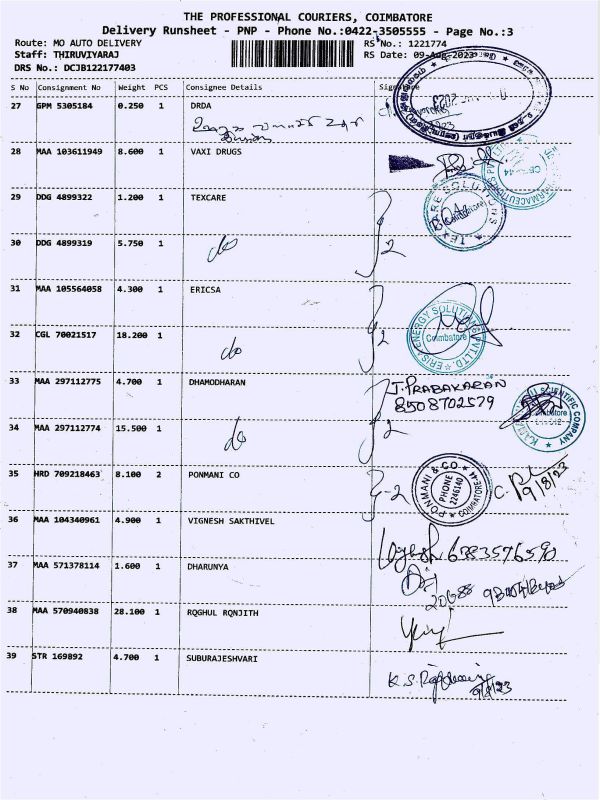 THE PROFESSIONAL COURIERS, COIMBATORE
Delivery Runsheet - PNP - Phone No.:0422-3505555 - Page No.:3
Route: MO AUTO DELIVERY RS No.: 1221774
Staff: THIRUVIYARAJ RS Date: 09-Aug-2023
DRS No.: DCJB122177403
S No Consignment No Weight PCS Consignee Details
27 GPM 5305184 0.250 1 DRDA
28 MAA 103611949 8.600 1 VAXI DRUGS
29 DDG 4899322 1.200 1 TEXCARE
30 DDG 4899319 5.750 1 do 2
31 MAA 105564058 4.300 1 ERICSA
32 CGL 70021517 18.200 1 do 2
Coimbatore
33 MAA 297112775 4.700 1 DHAMODHARAN J. PRABAKARAN
8508702579
34 MAA 297112774 15.500 1 do 2
35 HRD 709218463 8.100 2 PONMANI CO 2
PONMANI & CO
PHONE
2246140
COIMBATORE-44
9/8/23
36 MAA 104340961 4.900 1 VIGNESH SAKTHIVEL
37 MAA 571378114 1.600 1 DHARUNYA
38 MAA 570940838 28.100 1 RQGHUL RQNJITH
39 STR 169892 4.700 1 SUBURAJESHVARI
K.S.
9/8/23